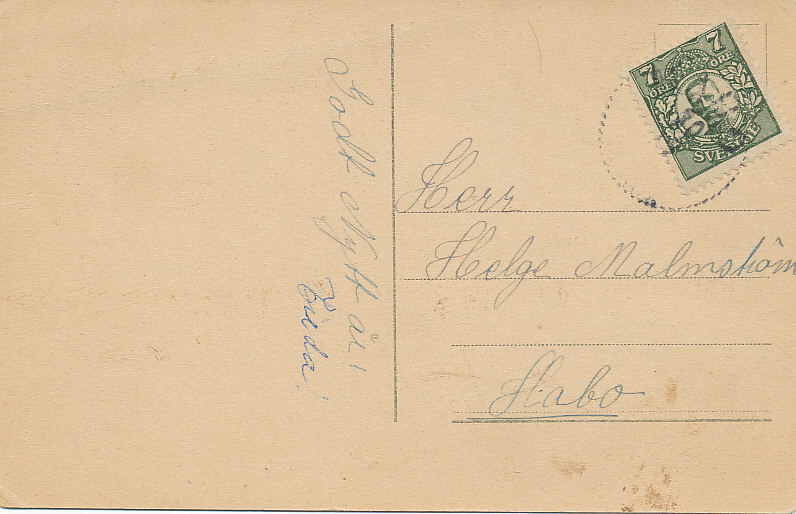 Godt Nytt år!
Herr
Helge Malmström
Habo
7 7
ÖRE ÖRE
SVERIGE